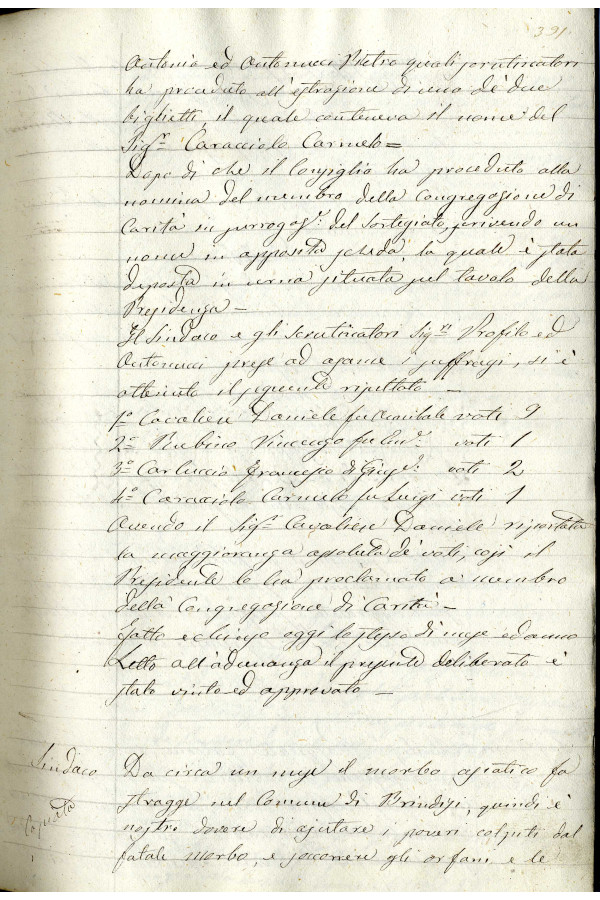 391.
Antonio ed Antonucci Pietro quali scrutinatori
ha proceduto all'estrazione di uno de' due
biglietti, il quale conteneva il nome del
Sigr. Caracciolo Carmelo =
Dopo di che il Consiglio ha proceduto alla
nomina del membro della Congregazione di
Carità in surrogaze. del sorteggiato, scrivendo un
nome in apposita scheda, la quale è stata
deposta in urna situata sul tavolo della
Presidenza —
Il Sindaco e gli scrutinatori Sigri. Profilo ed
Antonucci prese ad esame i suffragi, si è
ottenuto il seguente risultato —
1º Cavaliere Daniele fu Annibale voti 9
2º Rubino Vincenzo fu voti 1
3º Carluccio Francesco di Giuse. voti 2
4º Caracciolo Carmelo fu Luigi voti 1
Avendo il Sigr. Cavaliere Daniele riportata
la maggioranza assoluta de' voti, così il
Presidente lo ha proclamato a membro
della Congregazione di Carità —
Fatto e chiuso oggi lo stesso dì mese ed anno
Letto all'adunanza il presente deliberato è
stato vinto ed approvato —
Sindaco Da circa un mese il morbo asiatico fa
Copiata stragge nel Comune di Brindisi, quindi è
nostro dovere di ajutare i poveri colpiti dal
fatale morbo, e soccorrere gli orfani e le